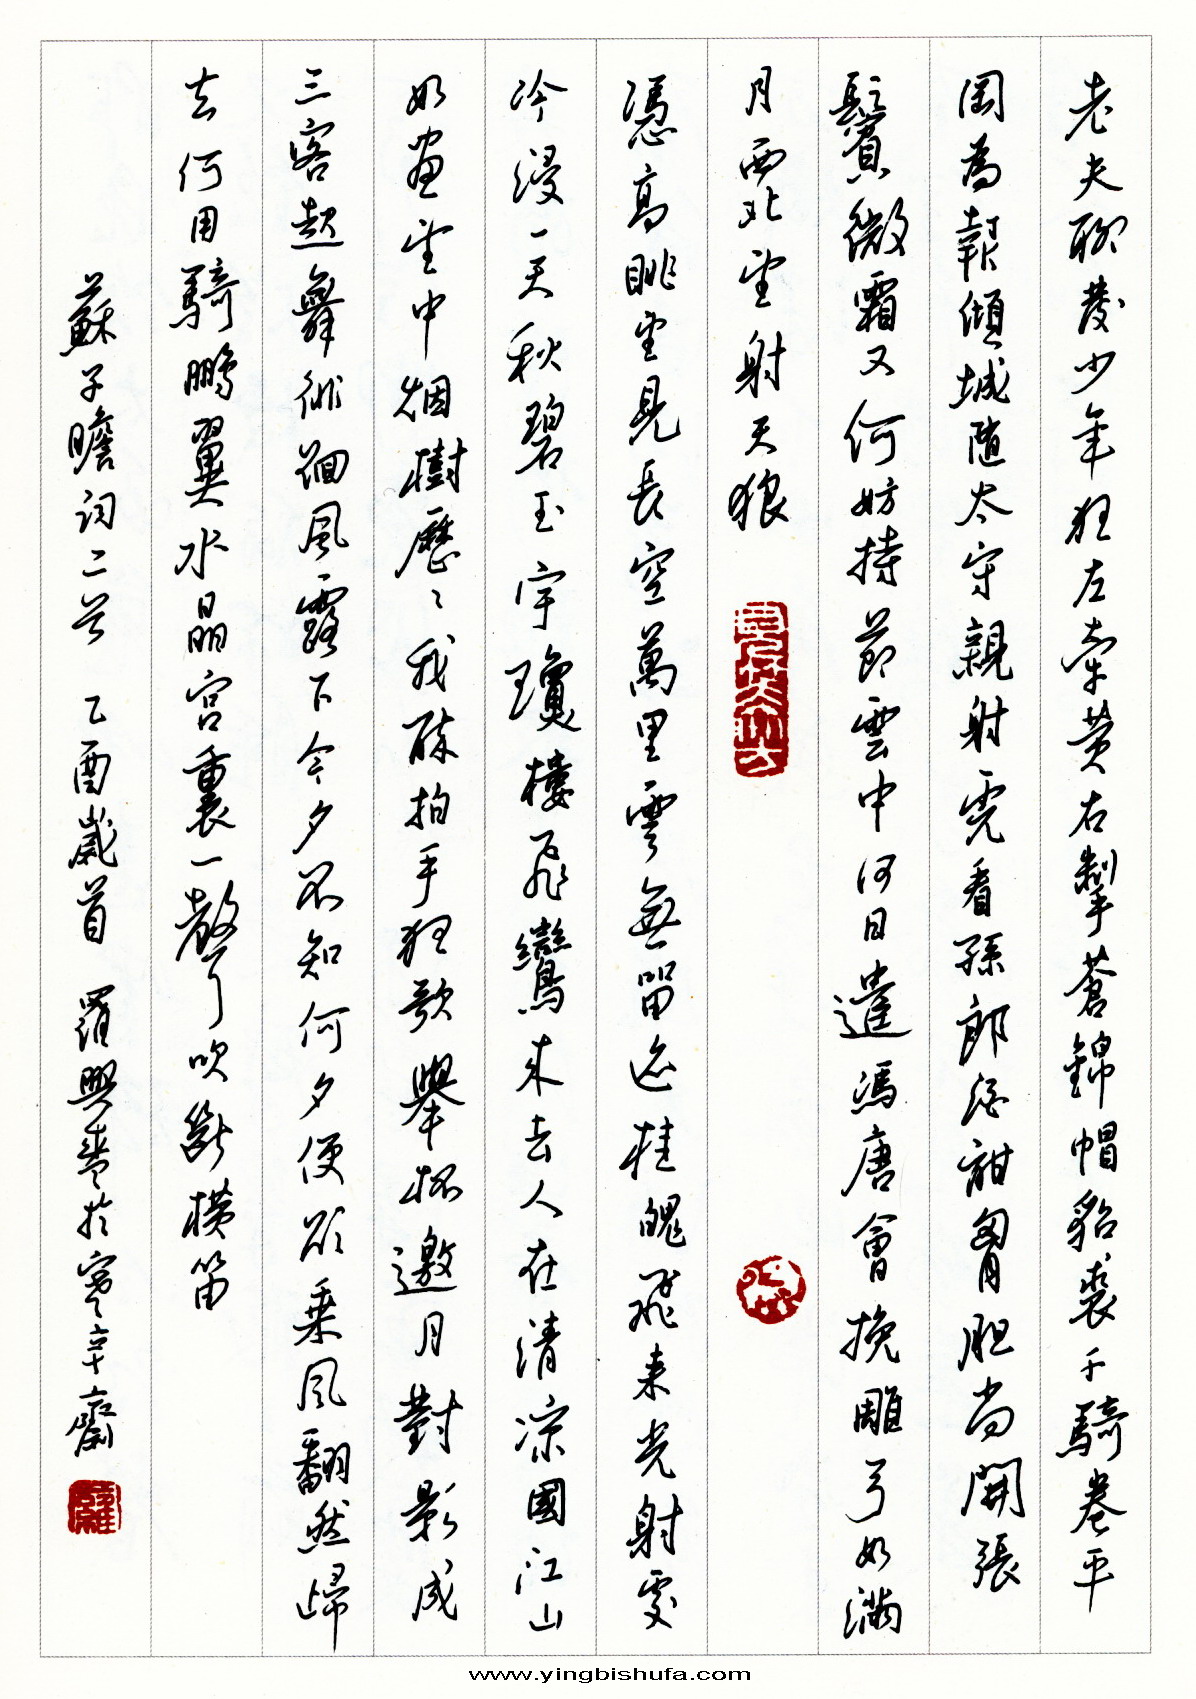 老夫聊發少年狂左牽黄右擎蒼錦帽貂裘千騎卷平
岡為報傾城隨太守親射虎看孫郎酒酣胷胆尚開張
鬢微霜又何妨持節雲中何日遣馮唐會挽雕弓如滿
月西北望射天狼
憑高眺望見長空萬里雲無留迹桂魄飛来光射處
冷浸一天秋碧玉宇瓊樓飛鸞来去人在清凉國江山
如畫望中烟樹歷〻我醉拍手狂歌舉杯邀月對影成
三客起舞徘徊風露下今夕不知何夕便欲乘風翻然歸
去何用騎鵬翼水晶宫裏一聲吹斷横笛
蘇子瞻詞二首 乙酉歲首 羅興 於寒辛齋
www.yingbishufa.com